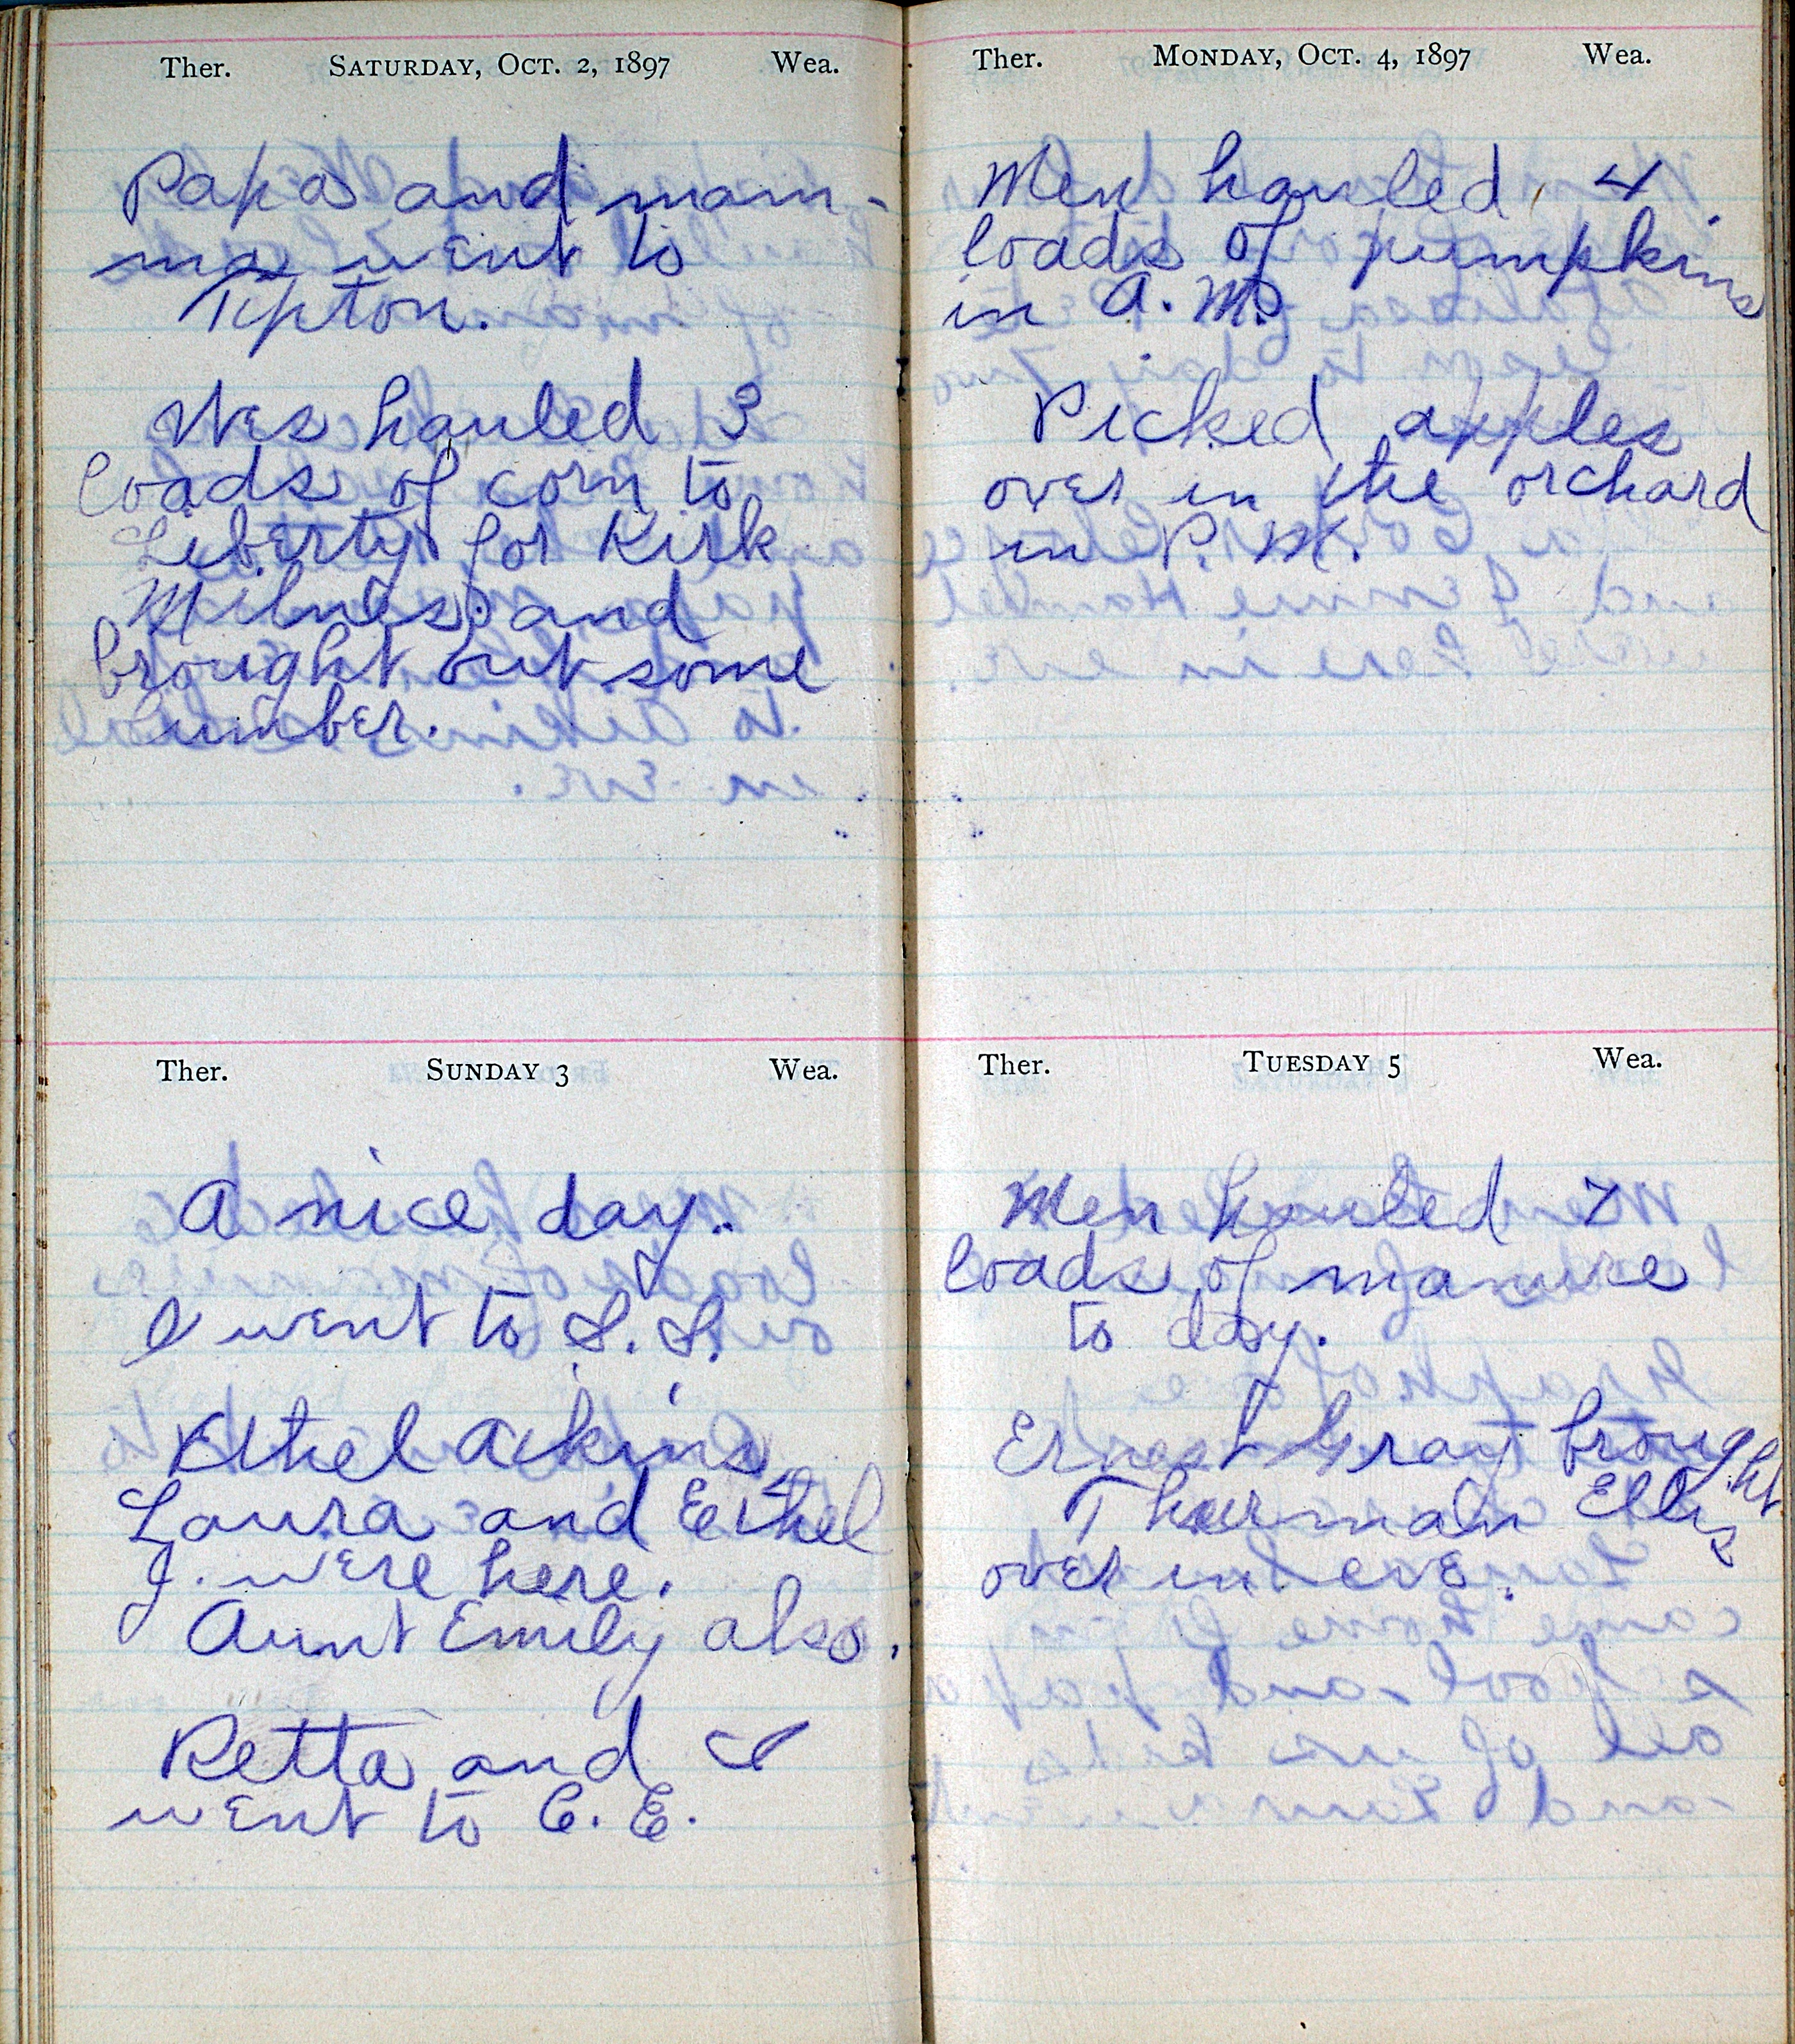 Ther. SATURDAY, OCT. 2, 1897 Wea.
Papa and mam-
ma went to
Tipton.
Wes hauled 3
loads of corn to
Liberty for Kirk
Milnes. and
brought out some
lumber.
Ther. SUNDAY 3 Wea.
A nice day.
I went to S. S.
Ethel Aikins,
Laura and Ethel
J. were here.
Aunt Emily also.
Retta and I
went to C. E.
Ther. MONDAY, OCT. 4, 1897 Wea.
Men hauled 4
loads of pumpkins
in A. M.
Picked apples
over in the orchard
in P. M.
Ther. TUESDAY 5 Wea.
Men hauled 7
loads of manure
to day.
Ernest Gray brought
Thurman Ellis
over in eve.